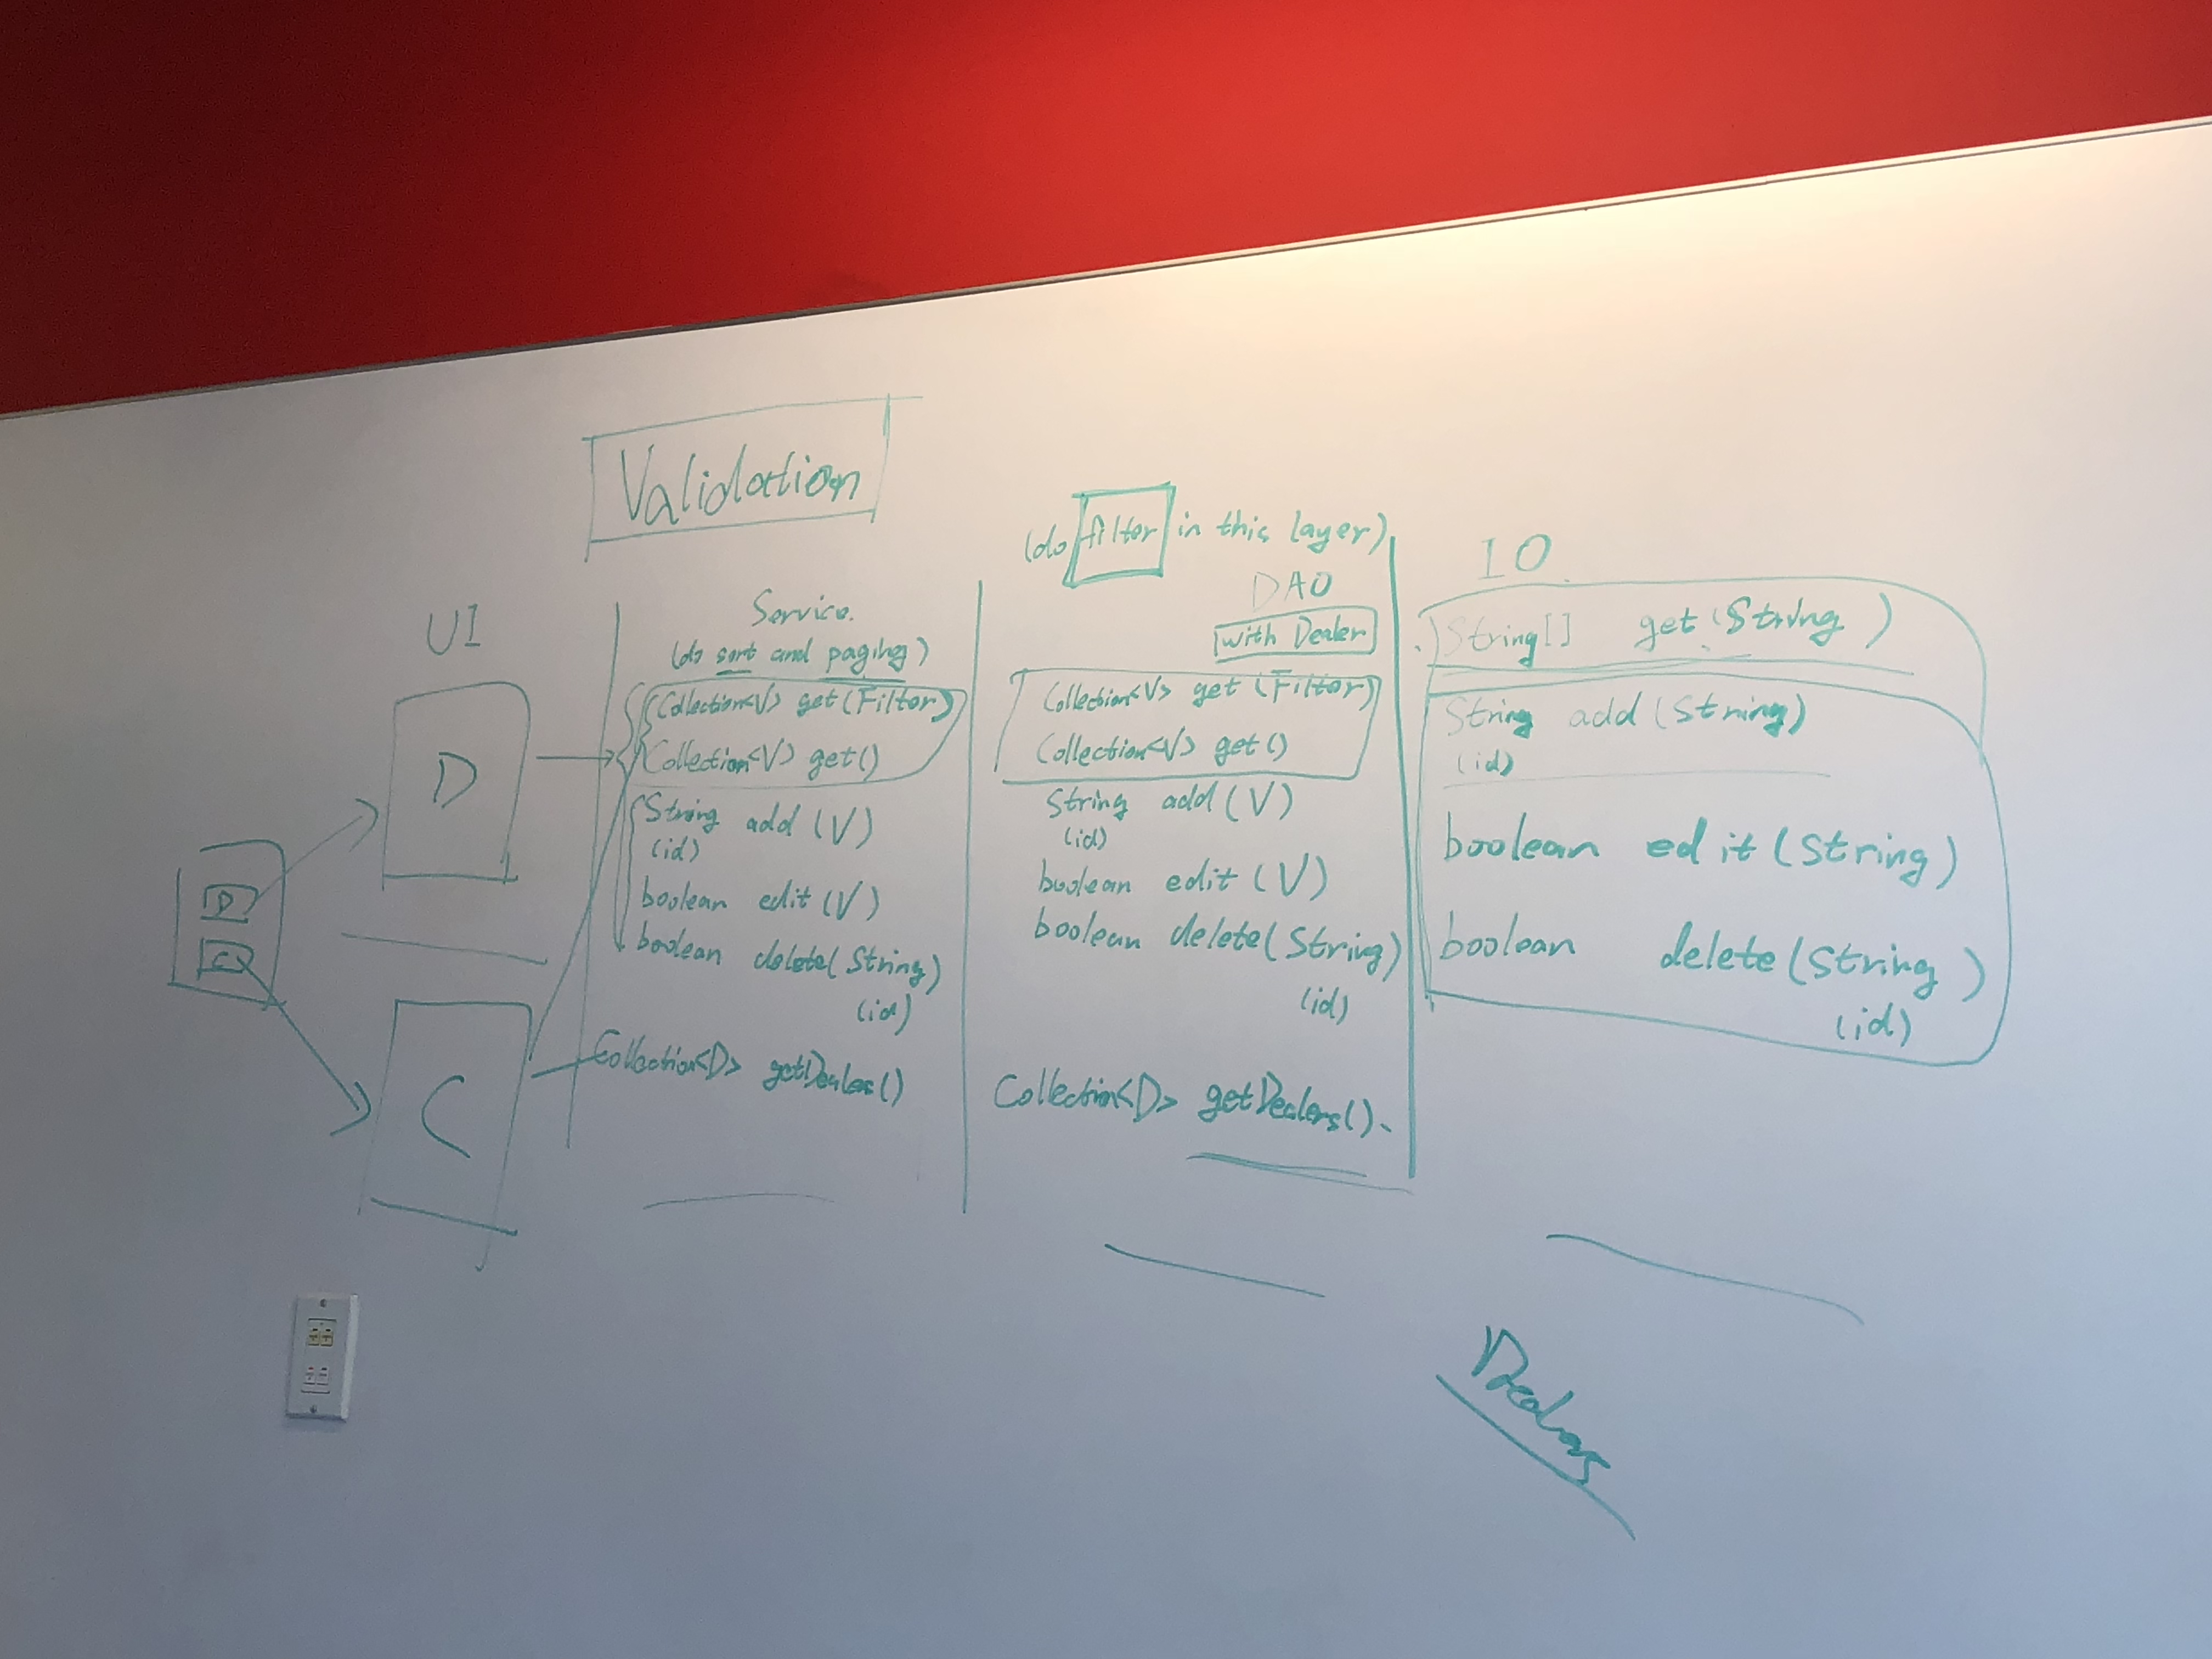 Validation
UI
D
D
C
C
Service.
(do sort and paging)
Collection<V> get(Filter)
Collection<V> get()
String add(V)
(id)
boolean edit(V)
boolean delete(String)
(id)
Collection<D> getDealers()
(do filter in this layer)
DAO
with Dealer
Collection<V> get(Filter)
Collection<V> get()
String add(V)
(id)
boolean edit(V)
boolean delete(String)
(id)
Collection<D> getDealers().
IO
String[] get(String)
String add(String)
(id)
boolean edit(String)
boolean delete(String)
(id)